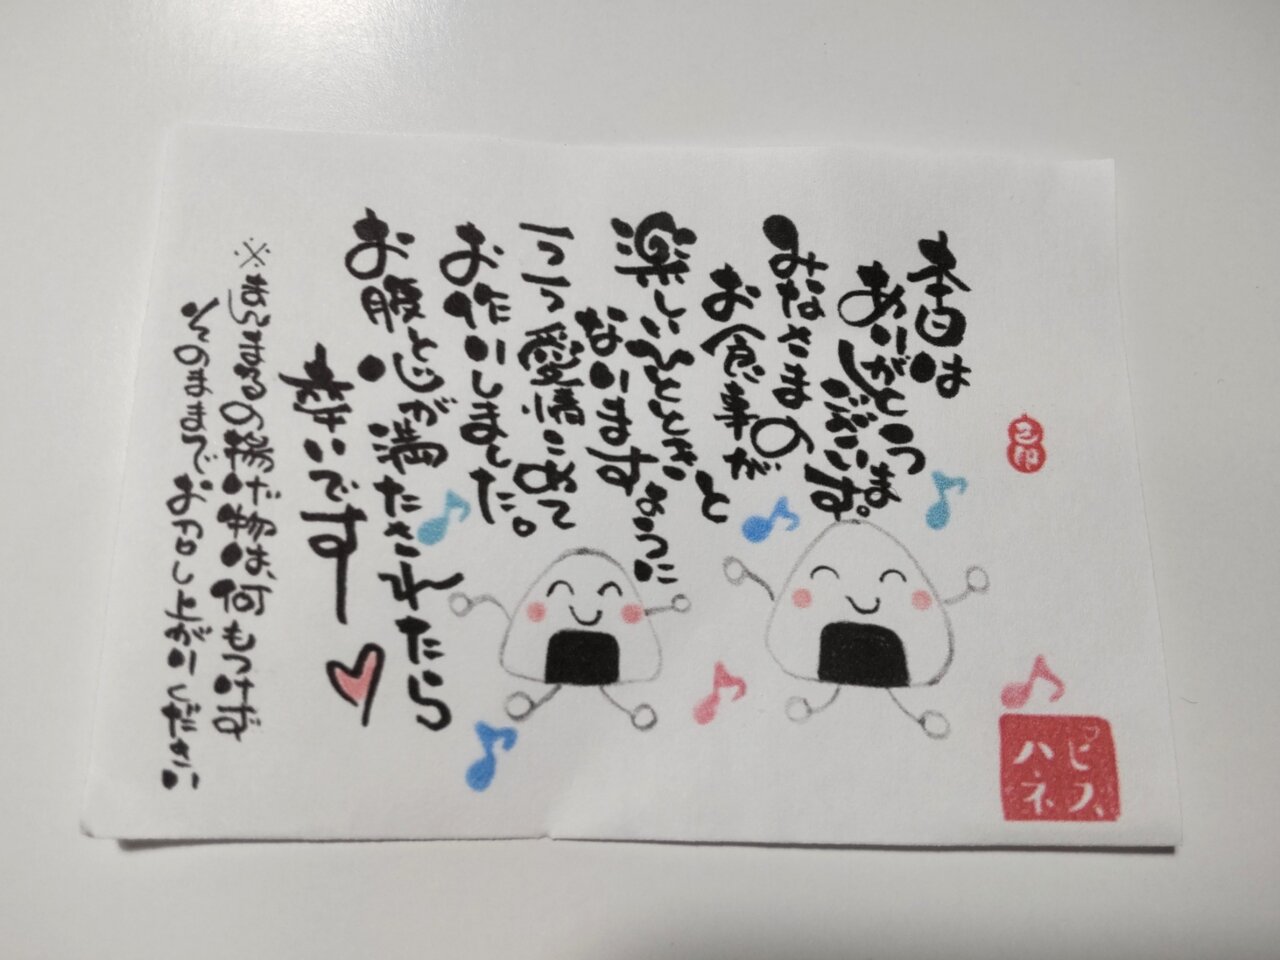 本日は
ありがとうございます。
みなさまの
お食事が
楽しいひとときと
なりますように
一つ一つ愛情こめて
お作りしました。
お腹と心が満たされたら
幸いです
※おにぎりの
そのままでお召し上がりください
ハネ